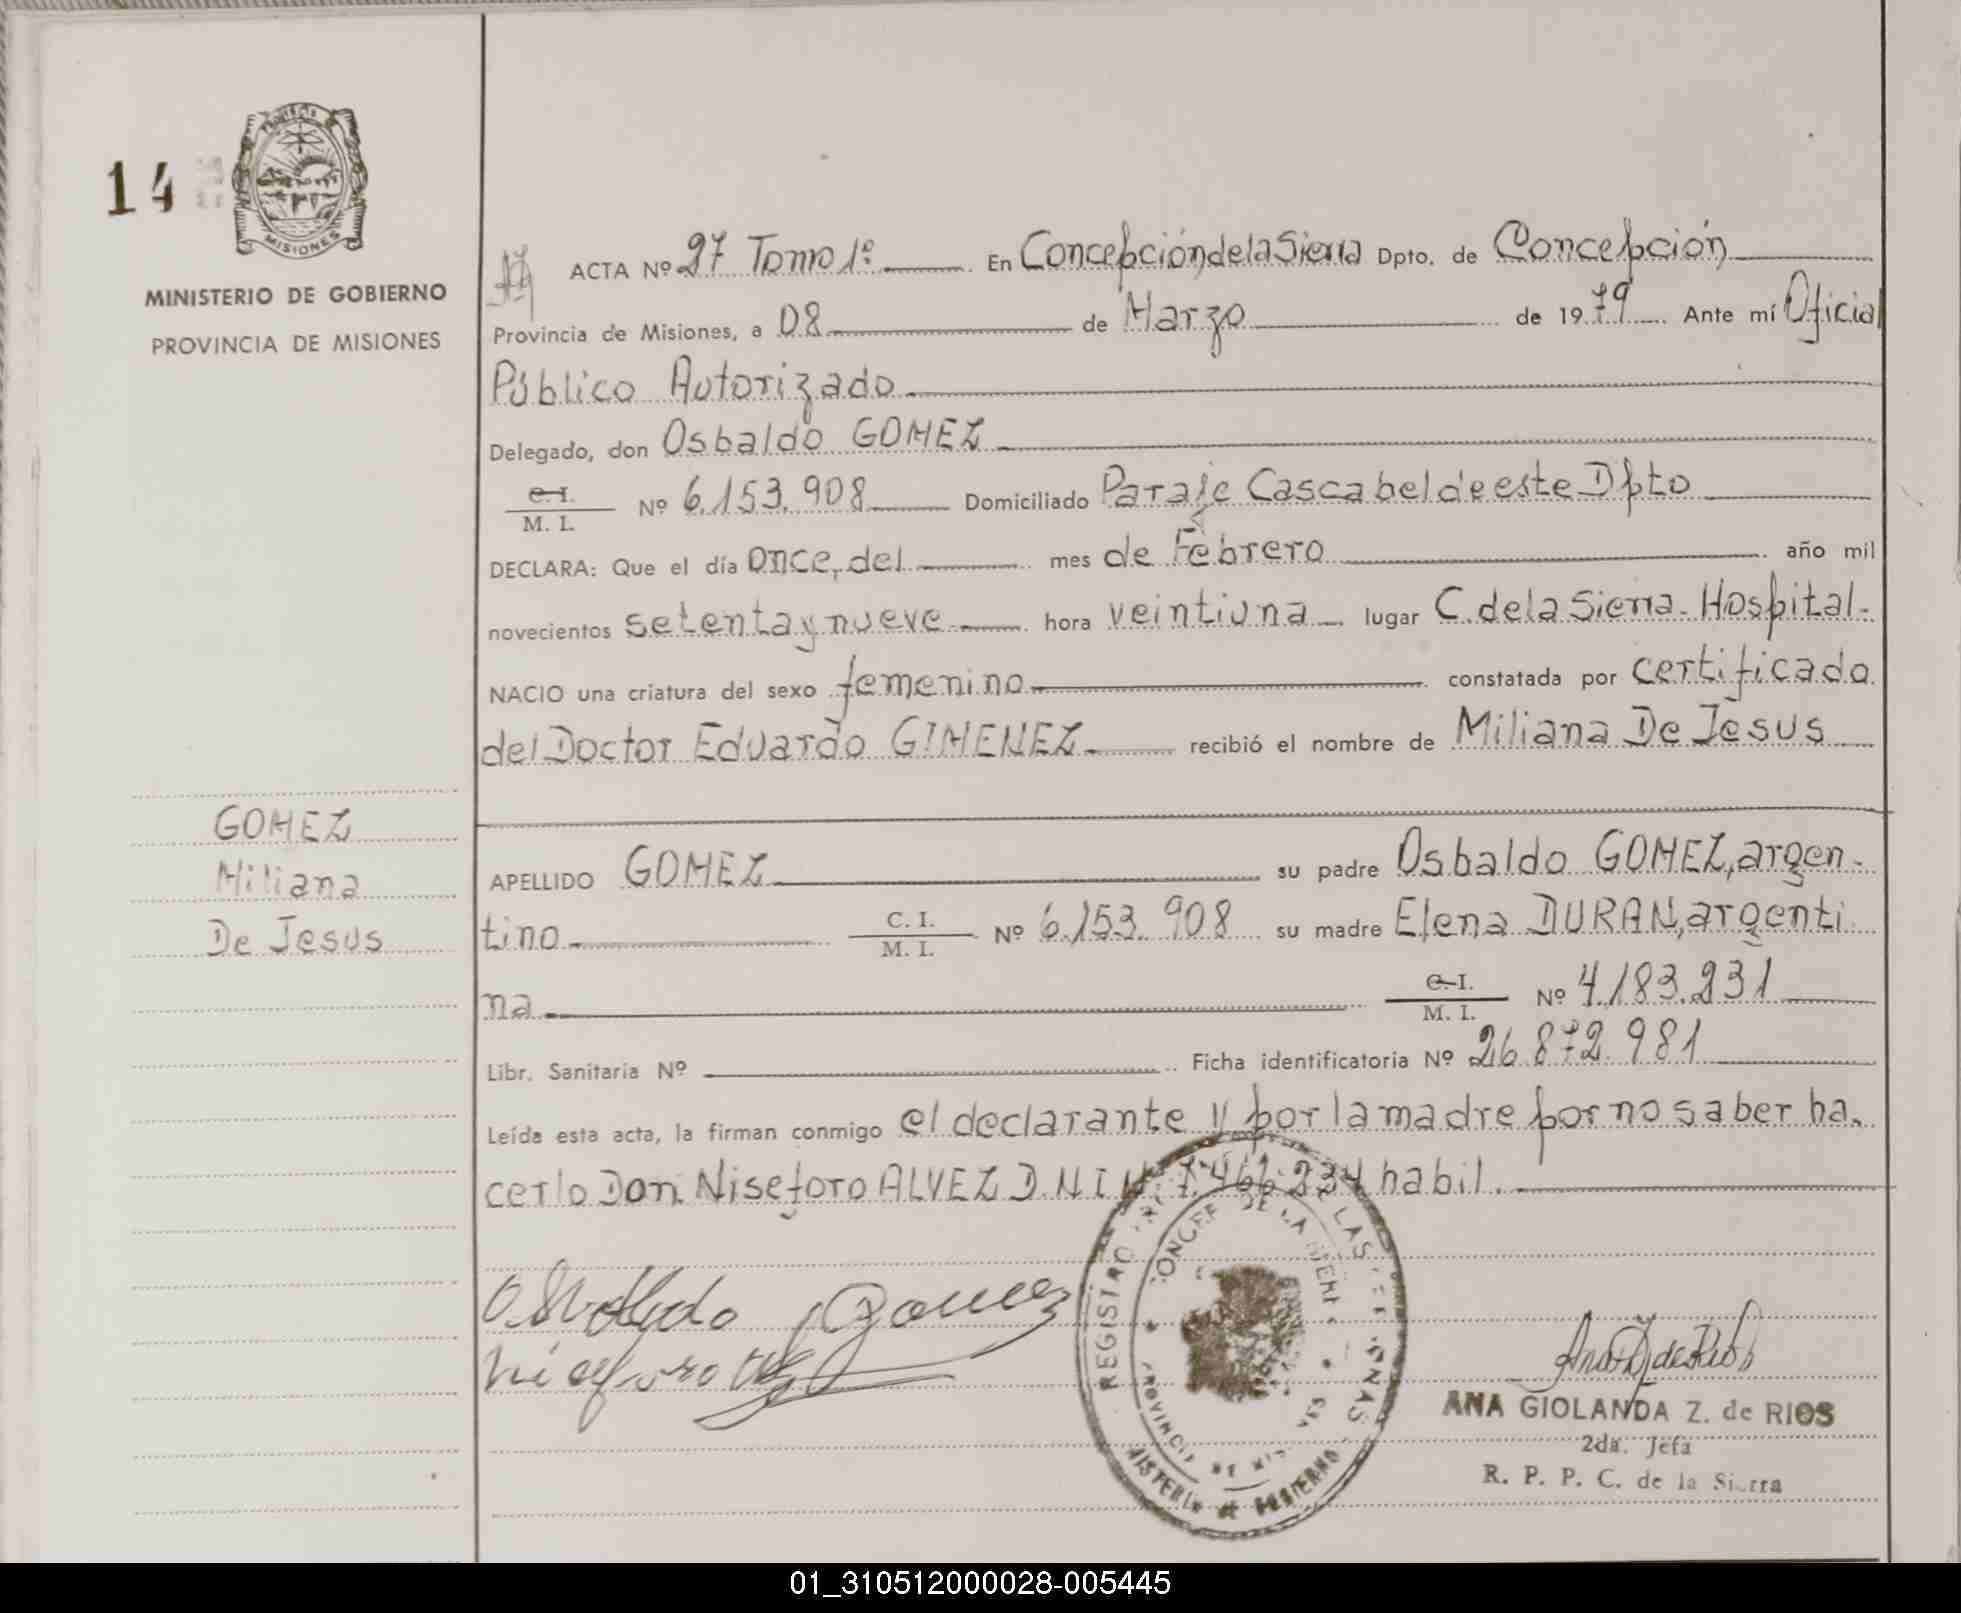 14
MISIONES
MINISTERIO DE GOBIERNO
PROVINCIA DE MISIONES
ACTA Nº 27 Tomo 1º En Concepción de la Sierra Dpto. de Concepción
Provincia de Misiones, a 08 de Marzo de 1979 Ante mí Oficial
Público Autorizado
Delegado, don Osbaldo GOMEZ
C. I.
M. I. Nº 6.153.908 Domiciliado Paraje Cascabel de este Dpto
DECLARA: Que el día once, del mes de Febrero año mil
novecientos setenta y nueve hora veintiuna lugar C. de la Sierra - Hospital -
NACIO una criatura del sexo femenino constatada por certificado
del Doctor Eduardo GIMENEZ recibió el nombre de Miliana De Jesus
GOMEZ
Miliana
De Jesus
APELLIDO GOMEZ su padre Osbaldo GOMEZ, argen-
tino C. I.
M. I. Nº 6.153.908 su madre Elena DURAN, argenti
na C. I.
M. I. Nº 4.183.231
Libr. Sanitaria Nº Ficha identificatoria Nº 26.872.981
Leída esta acta, la firman conmigo el declarante y por la madre por no saber ha-
cerlo Don Niseforo ALVEZ D.N.I.Nº 7.466.234 habil.
REGISTRO DE LAS PERSONAS
CONCEP. DE LA SIERRA
PROVINCIA DE MISIONES
MINISTERIO DE GOBIERNO
Osvaldo Gomez
Ana Z de Rios
ANA GIOLANDA Z. de RIOS
2da. Jefa
R. P. P. C. de la Sierra
01_310512000028-005445